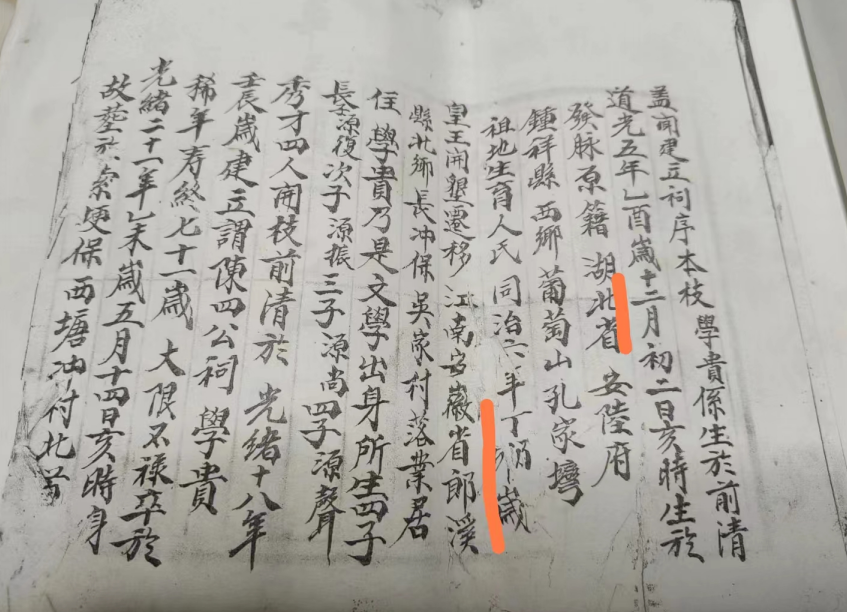 蓋聞建立祠序本枝學貴係生於前清
道光五年乙酉歲十二月初二日亥時生於
發脉原籍湖北省安陸府
鍾祥縣西鄉葡萄山孔家塆
祖地生育人氏同治六年丁卯歲
皇王開墾遷移江南安徽省郎溪
縣北鄉長冲保吳家村落業居
住學貴乃是文學出身所生四子
長子源復次子源振三子源尚四子源聲
秀才四人開枝前清於光緒十八年
壬辰歲建立謂陳四公祠學貴
稀年寿終七十一歲大限不祿卒於
光緒二十一年乙未歲五月十四日亥時身
故塟於索埂保西塘冲村北首